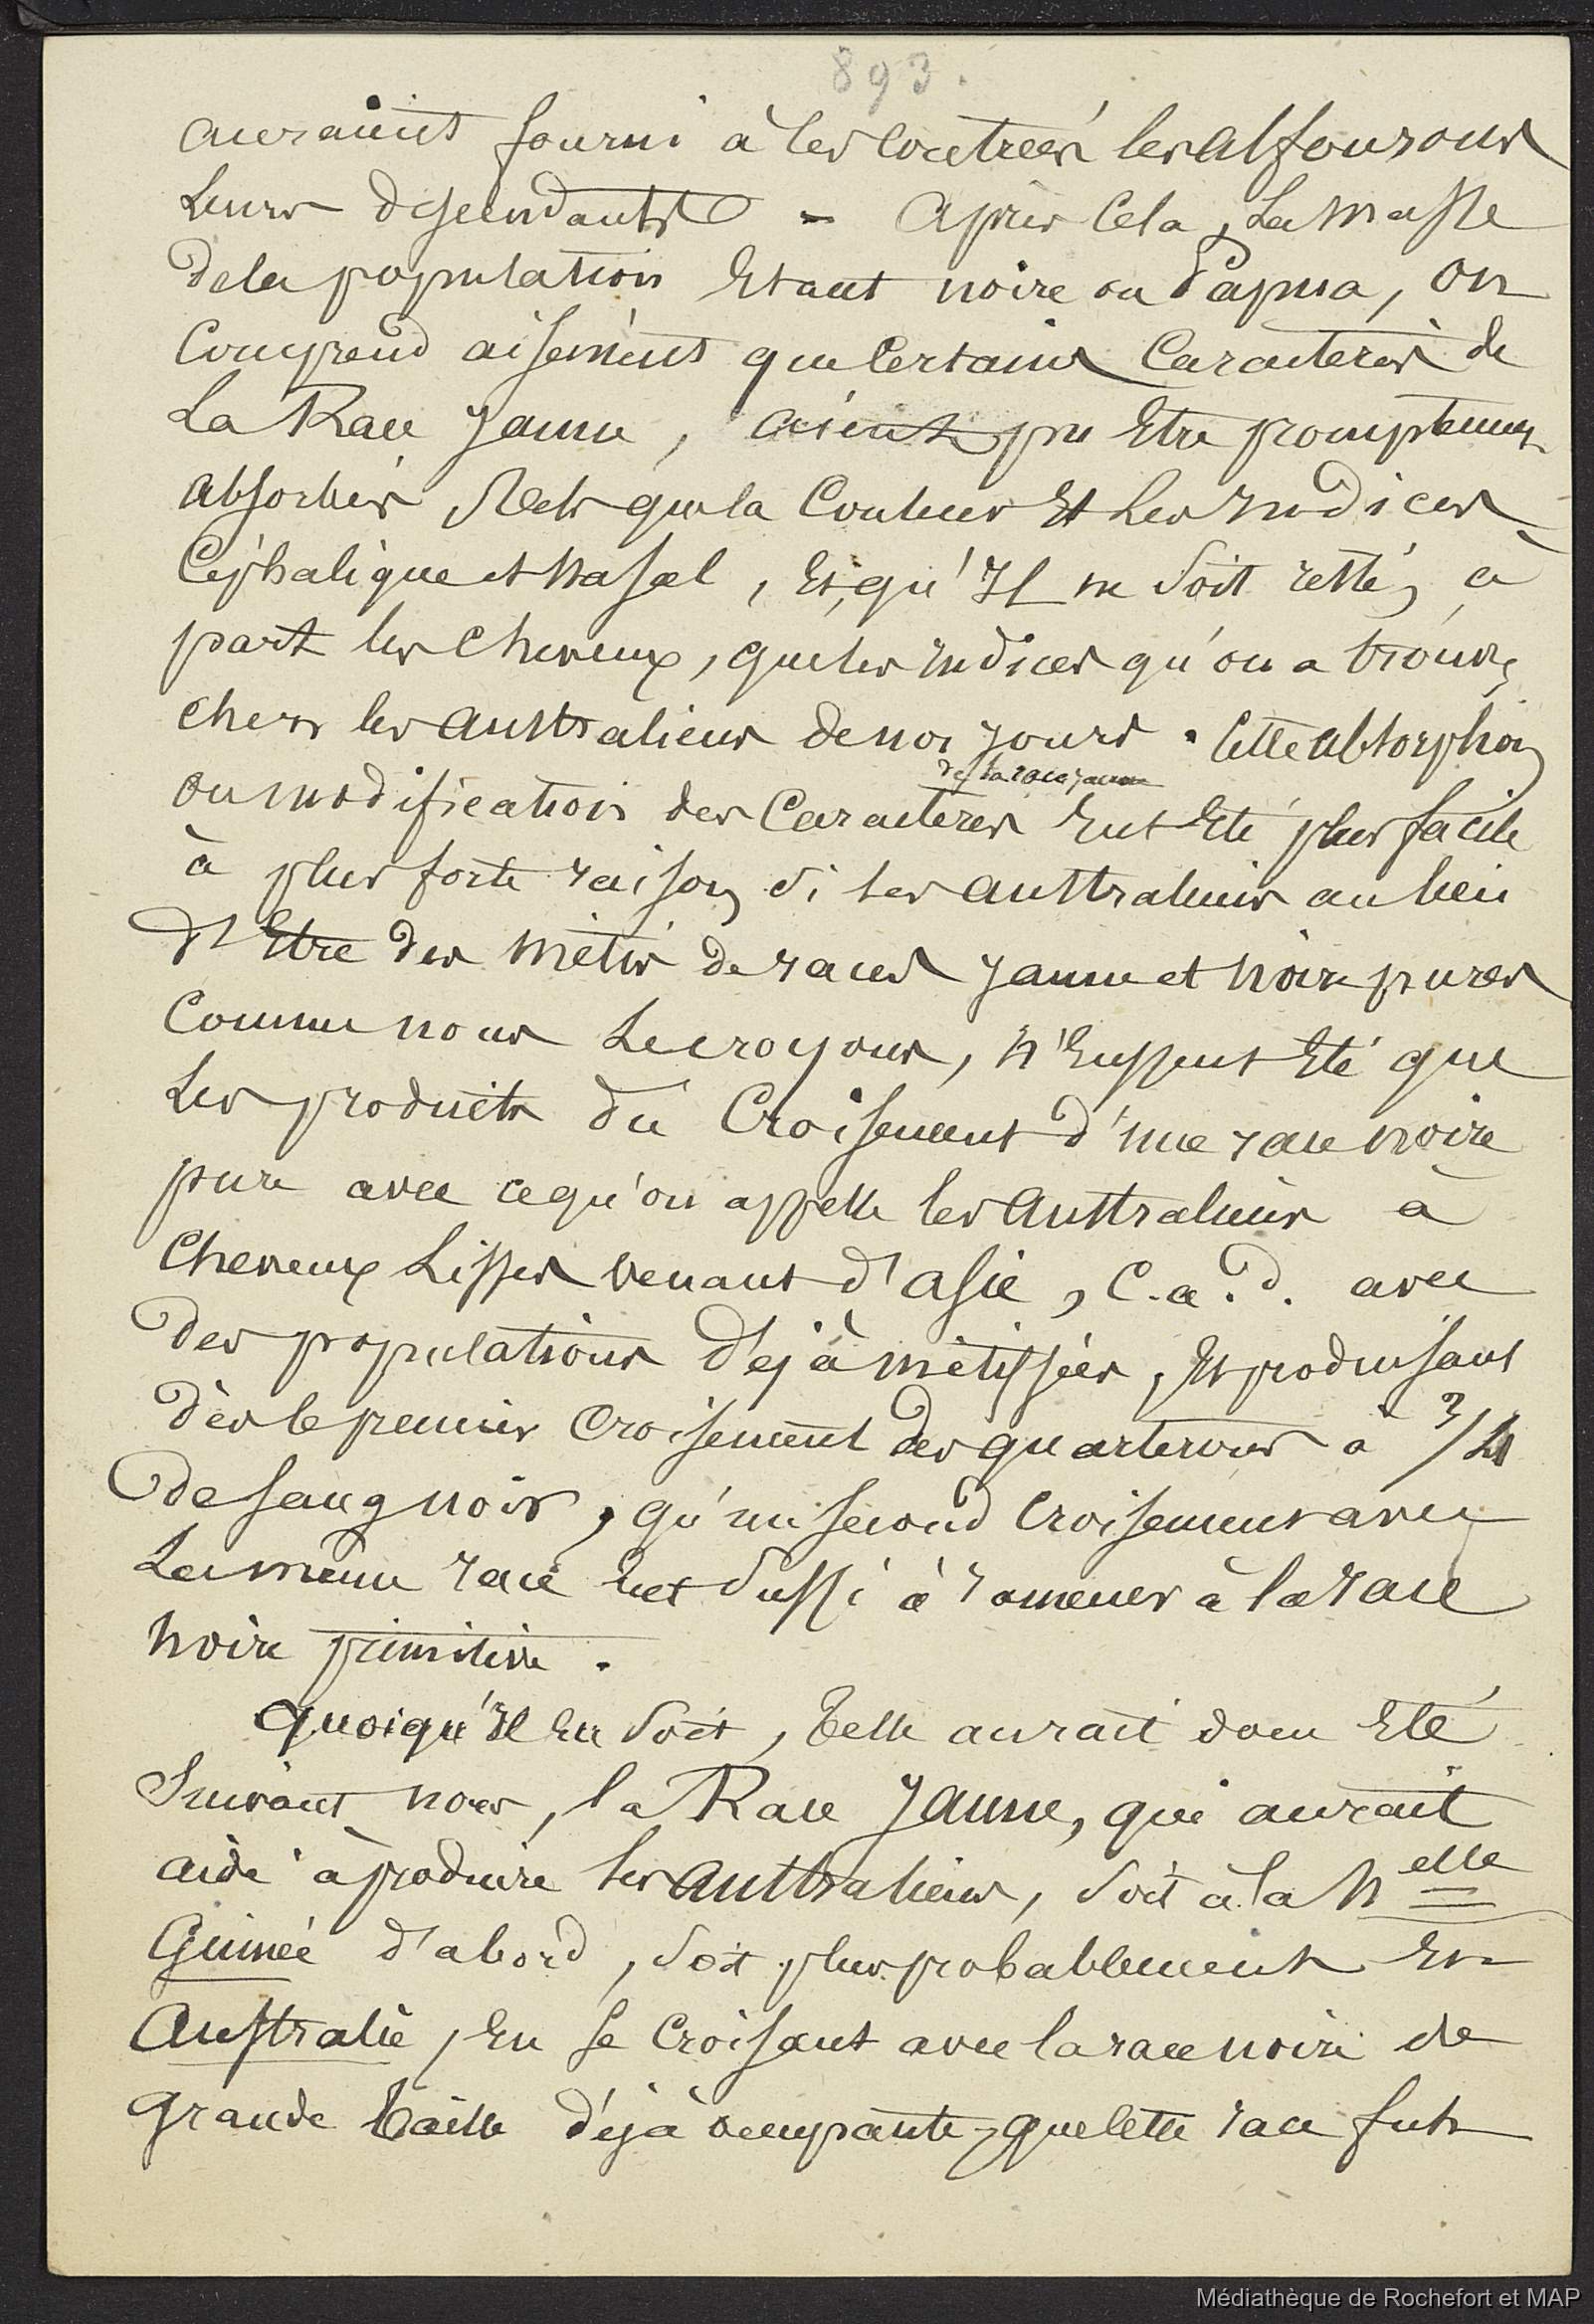 893.
auraient fourni à ces contrées les alfourous
Leurs descendants - Après cela, La masse
de la population Etant noire ou Papua, on
Comprend aisément que Certains Caractères de
La Race Jaune, aient pu Etre promptement
absorbés, tels que la Couleur Et Les Indices
Céphalique et nasal, Et qu'Il ne Soit resté, à
part les cheveux, que les Indices qu'on a trouvé
chez les australiens de nos jours. Cette absorption
de la race jaune
ou modification des Caractères Eut Eté plus facile
à plus forte raison, si les australiens au lieu
d'Etre des métis de races jaune et noire pures
Comme nous Le croyons, n'Eussent Eté que
Les produits du Croisement d'une race noire
pure avec ce qu'on appelle les Australiens à
Cheveux Lisses venant d'asie, c.a.d. avec
des populations déjà métissées, Et produisant
dès le premier Croisement des quarterons à 3/4
de sang noir, qu'un second Croisement avec
La même race Eut suffi à ramener à la race
noire primitive.
Quoiqu'Il En Soit, Telle aurait donc Eté
Suivant nous, la Race Jaune, qui aurait
aidé à produire les Australiens, soit à la Nelle
Guinée d'abord, soit plus probablement En
Australie, En se Croisant avec la race noire de
grande Taille déjà occupante, que cette race fut
Médiathèque de Rochefort et MAP